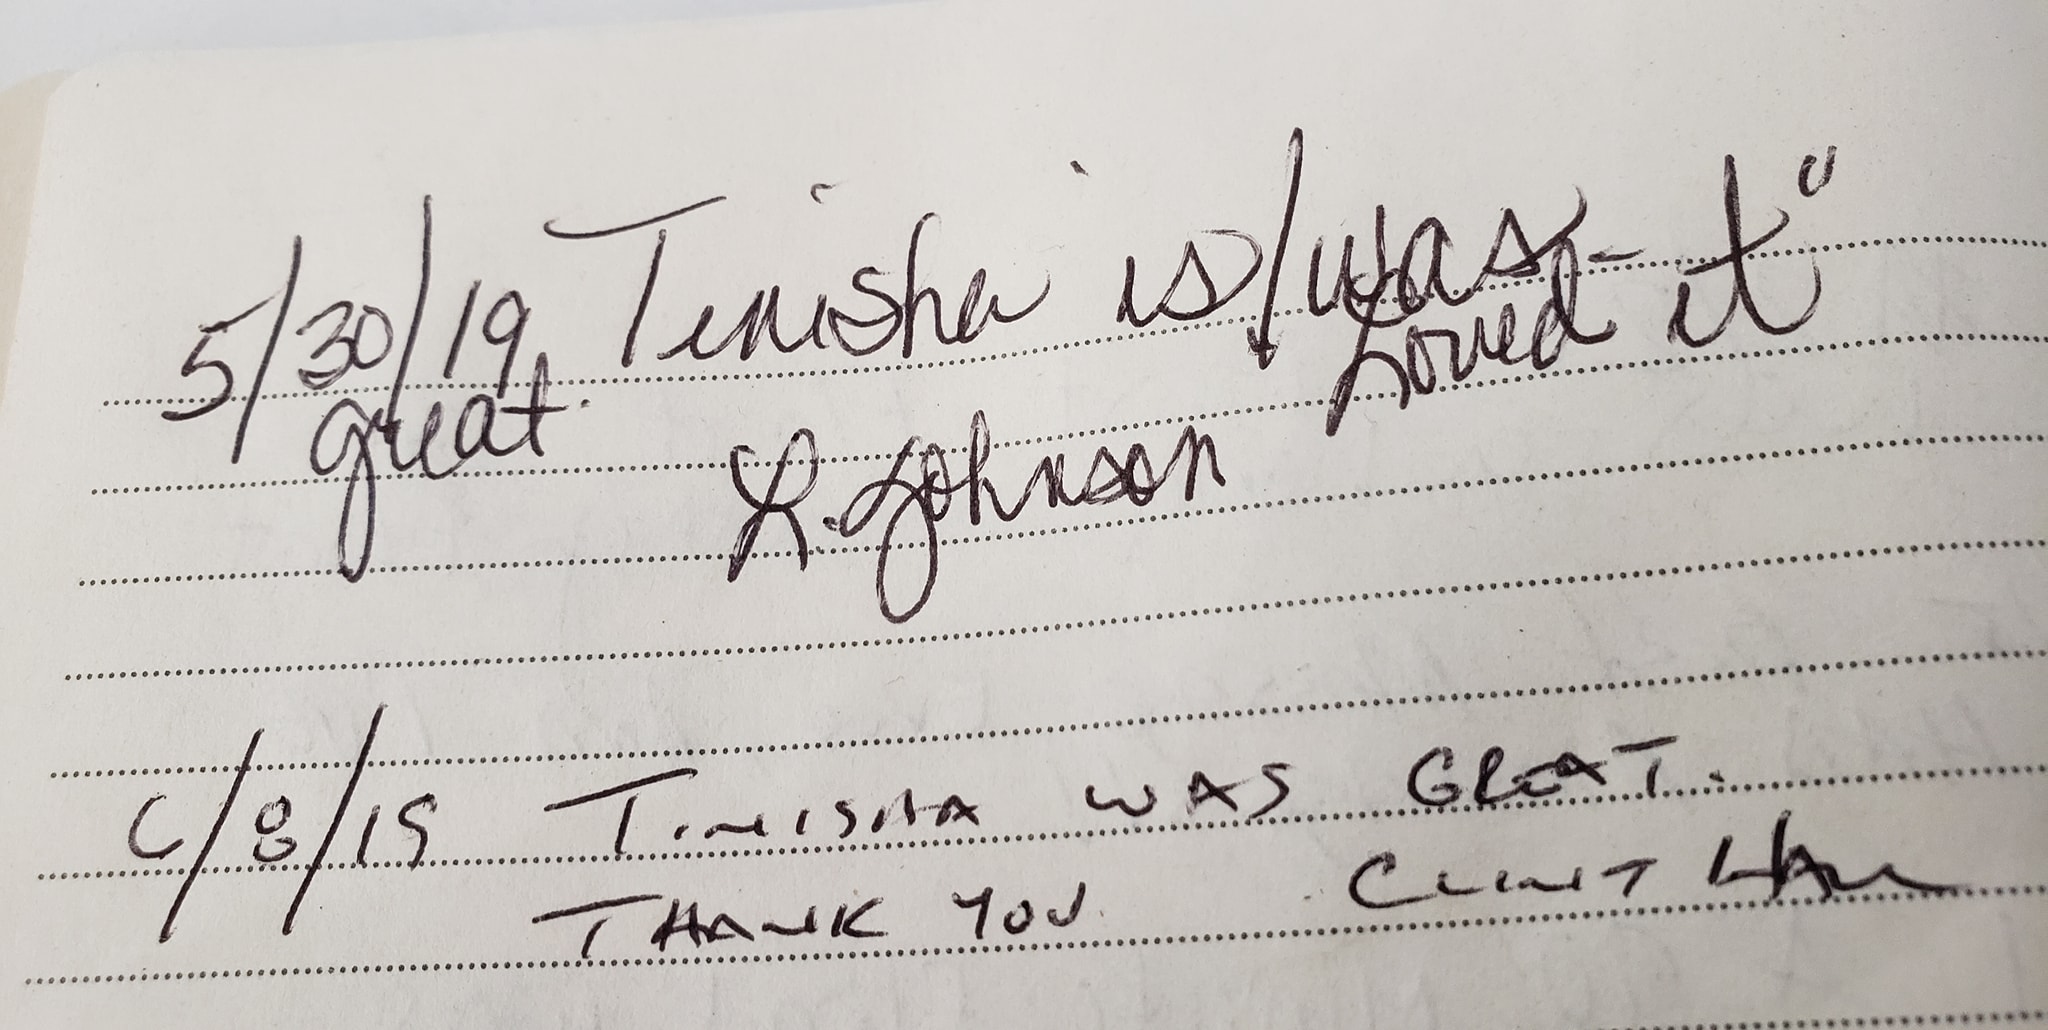 5/30/19 Tenisha is/was
great. Loved it"
L. Johnson
6/8/19 Tinisha WAS GREAT.
THANK YOU CLINT HALL